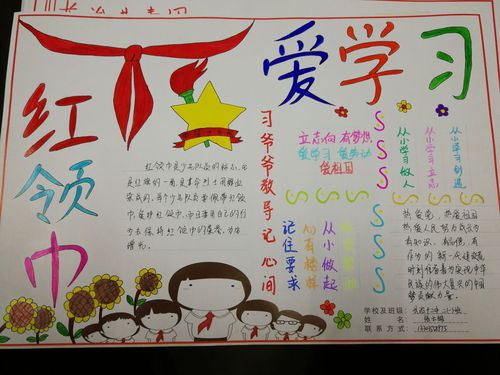 红领巾
爱学习
习爷爷教导记心间
立志向 有梦想
爱学习 爱劳动
爱祖国
从小学习做人
从小学习立志
从小学习创造
记住要求
心有榜样
从小做起
接受帮助
红领巾是少先队员的标心,它
是红旗的一角,是革命烈士用鲜血
染成的。每个少先队员要佩带红领
巾,爱护红领巾,
去保持红领巾的荣誉,为它
增光。
热爱党,热爱祖国
热爱人民努力成长为
有知识、有品德、有
作为的新一代建设者
时刻准备着为实现中华
民族的伟大复兴的中国
梦贡献力量。
学校及班级:
姓 名:
联系方式: